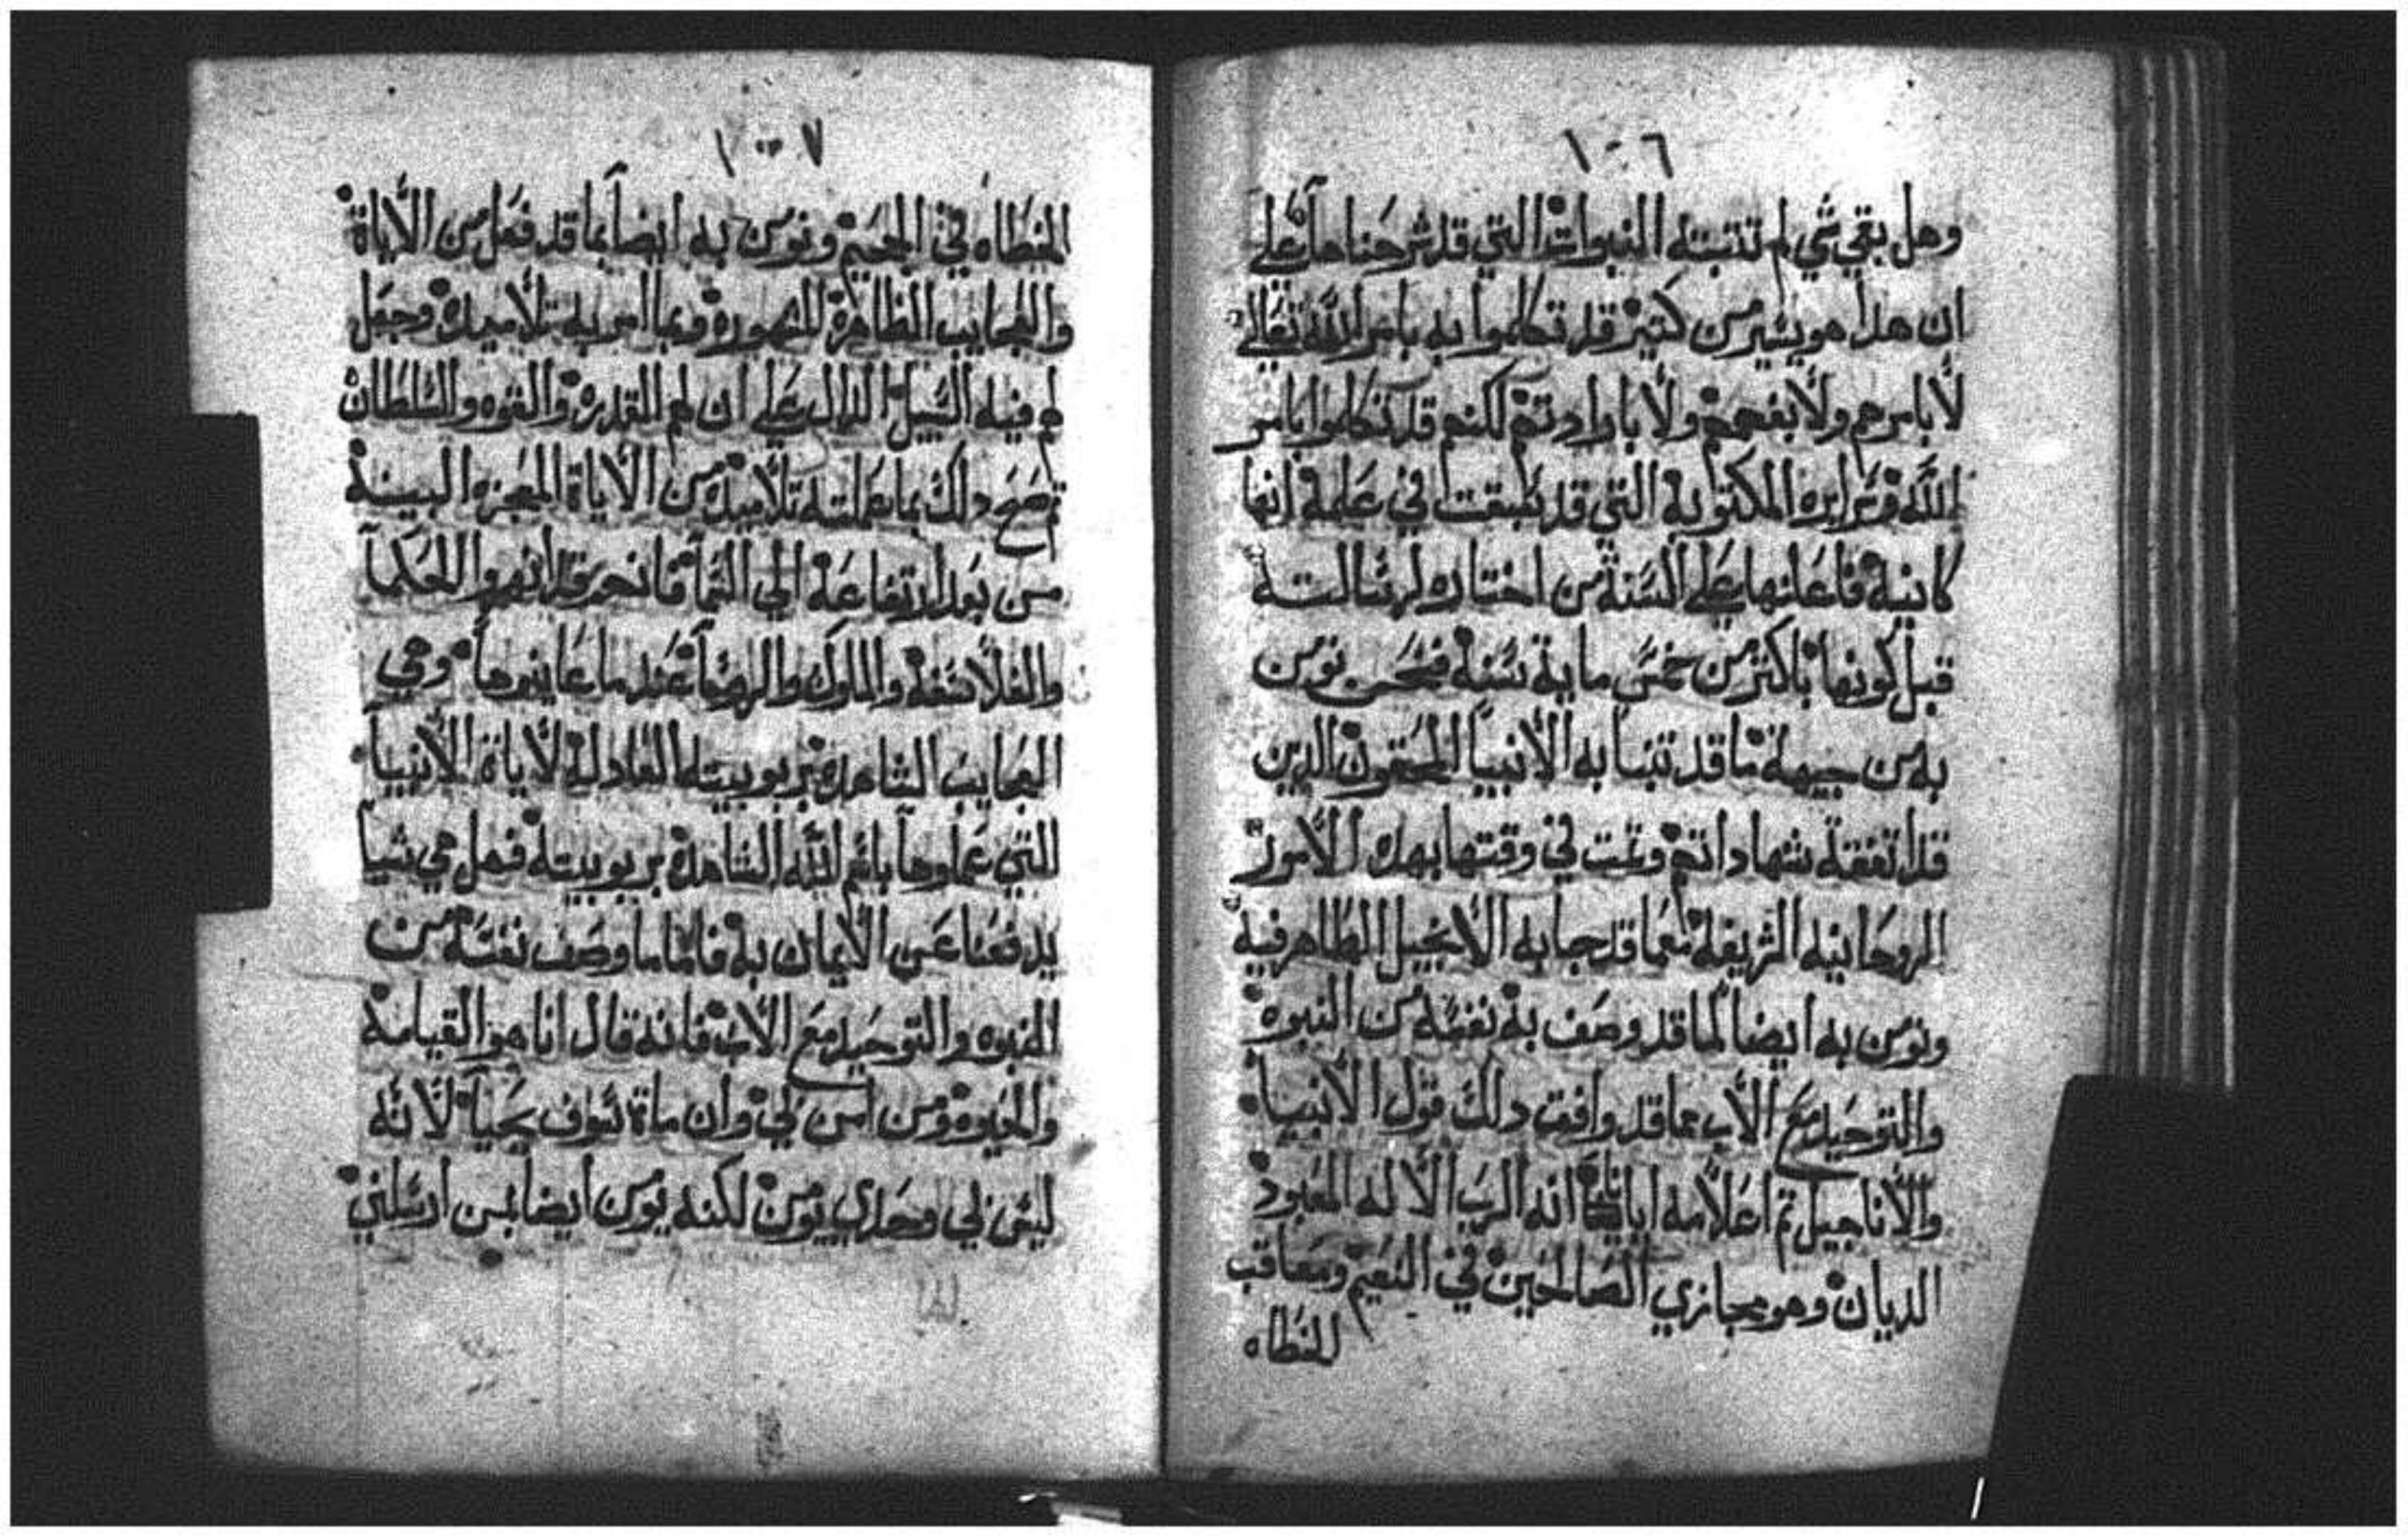 ١٠٦
وهل بقي شي لم تتبته النبوات التي قد شرحناها علي
ان هدا هو يسير من كتير قد تكلموا به بامر الله تعالي
لا بامرهم ولا بفهمهم ولا بارادتهم لكنهم قد تكلموا بامر
الله المكتوبة التي قد سبقت في علمه انها
كاينة فاعلنها علي السنة من اختاره لرسالته
قبل كونها باكتر من خمس ماية سنة فنحن نومن
به من جيهة ما قد تنبا به الانبيا المحقون الدين
قد اتفقة شهاداتهم وتمت في وقتها بهده الامور
الروحانية الشريفة مما قد جا به الانجيل الطاهر فيه
ونومن به ايضا لما قد وصف به نفسه من النبوه
والتوحيد مع الاب مما قد وافق دلك قول الانبيا
والاناجيل تم اعلامه ايانا انه الرب الاله المعبود
الديان وهو مجازي الصالحين في النعيم ومعاقب
للخطاه
١٠٧
للخطاه في الجحيم ونومن به ايضا بما قد فعل من الاياة
والعجايب الظاهرة المشهورة وبما امر به تلاميده وجعل
لهم فيه السبيل الدال علي ان لهم القدرة والقوه والسلطان
تم صح دلك بما عملته تلاميده من الاياة المعجزه البينة
من بعد ارتفاعة الي السما فانحرق والحكما
والفلاسفة والملوك والروسا عندما عاينوها وهي
العجايب الشاهدة بربوبيته العادلة لاياة الانبيا
التي عملوها باسم الله الشاهدة بربوبيته فهل هي شيا
يدفعنا عن الايمان به فاما ما وصف نفسه من
النبوه والتوحيد مع الاب فانه قال انا هو القيامة
والحيوة ومن امن بي وان ماة سوف يحيا لانه
ليس بي وحدي يومن لكنه يومن ايضا بمن ارسلني